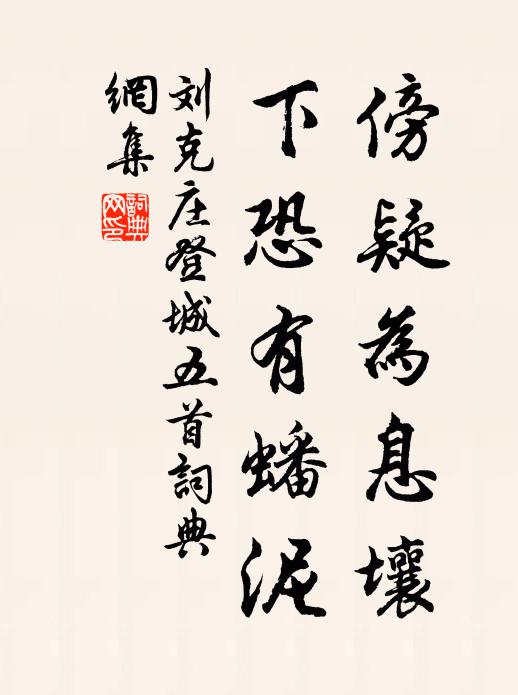 傍疑為息壤
下恐有蟠泥
刘克庄登城五首詞典
網集
詞典
网印